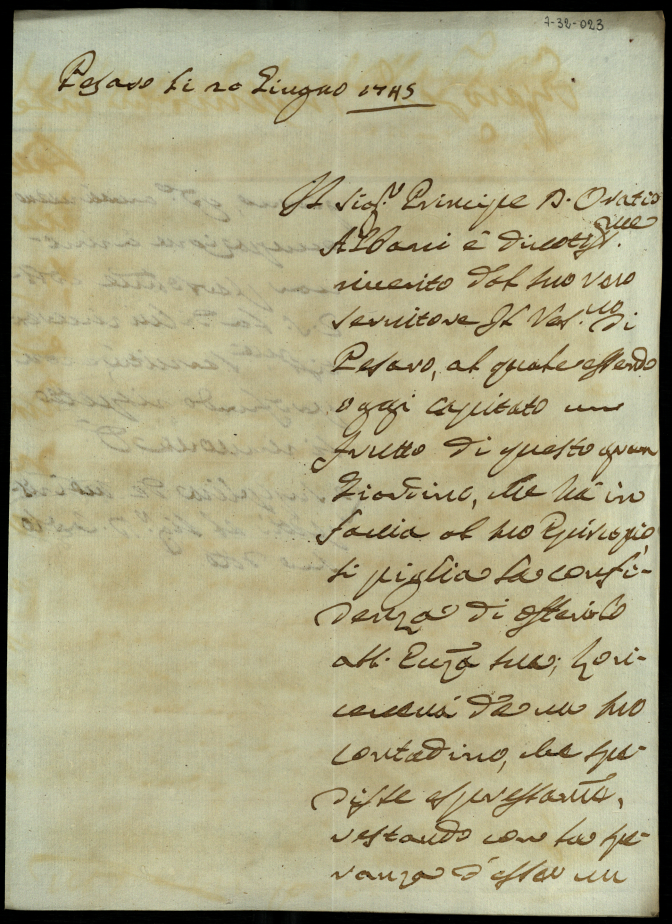 7-32-023
Pesaro li 20 Giugno 1745
Il Sig.r Principe D. Oratio
Albani è divotis.me
riverito dal suo vero
servitore Il Ves.vo di
Pesaro, al quale essendo
oggi capitato un
frutto di questo gran
Giardino, che hà in
faccia al suo Episcopio,
si piglia la confi-
denza di offerirlo
all' Ecc.za sua; lo ri-
ceverà da un suo
contadino, che spe-
disce espressam.te,
restando con la spe-
ranza d'esser un